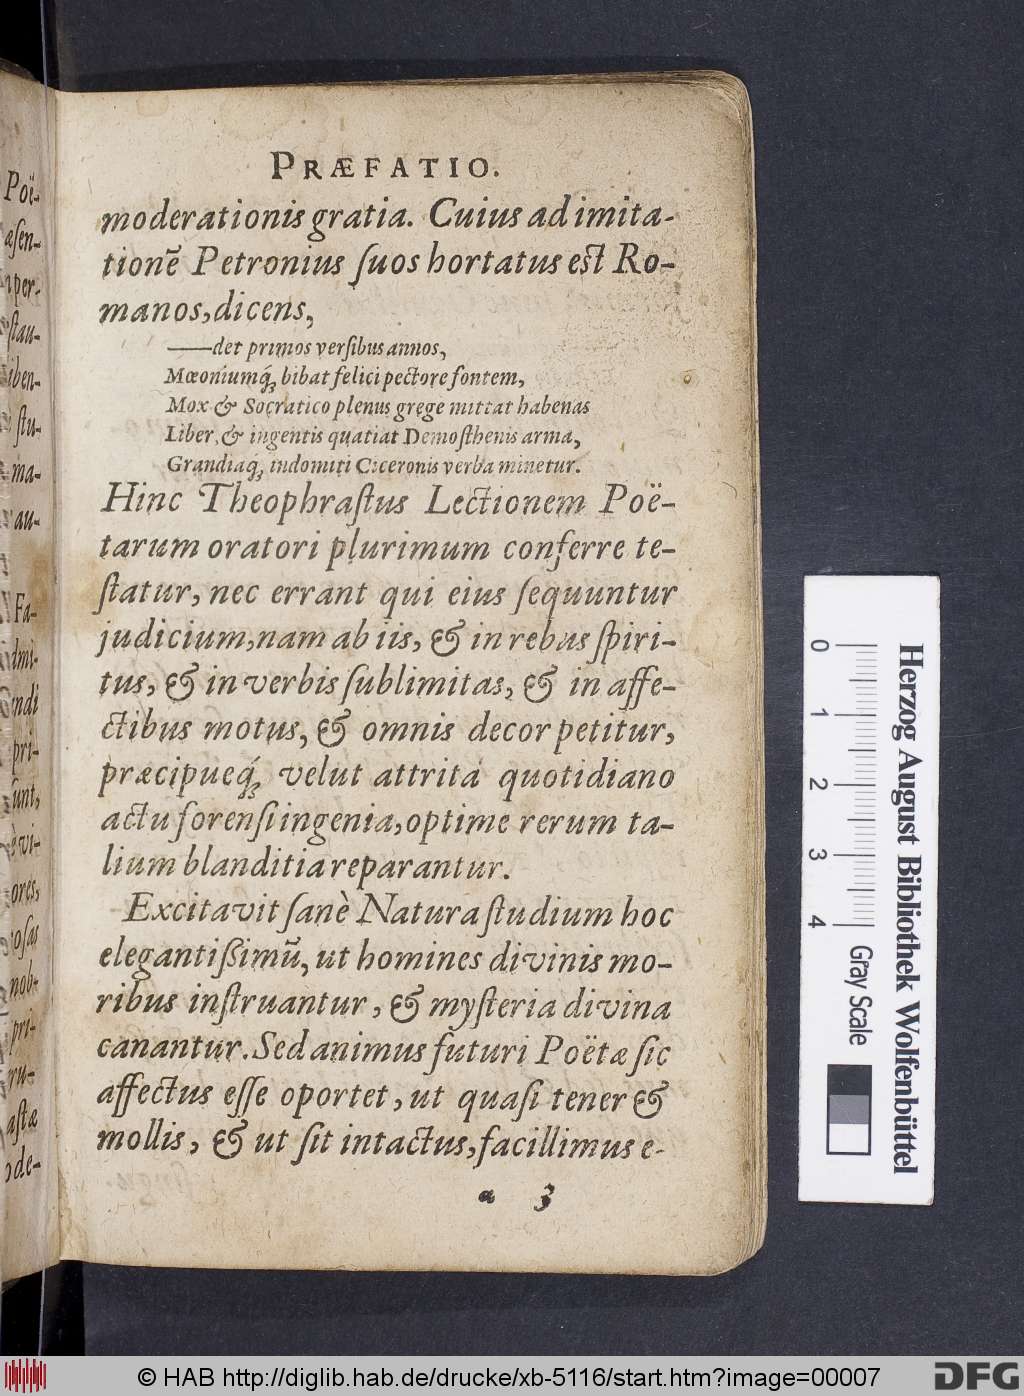 PRÆFATIO.
moderationis gratia. Cuius ad imita-
tionē Petronius ſuos hortatus est Ro-
manos, dicens,
——det primos verſibus annos,
Mæoniumq́ꝫ bibat felici pectore fontem,
Mox & Socratico plenus grege mittat habenas
Liber, & ingentis quatiat Demoſthenis arma,
Grandiaq́ꝫ indomiti Ciceronis verba minetur.
Hinc Theophraſtus Lectionem Poë-
tarum oratori plurimum conferre te-
ſtatur, nec errant qui eius ſequuntur
judicium, nam ab iis, & in rebus ſpiri-
tus, & in verbis ſublimitas, & in affe-
ctibus motus, & omnis decor petitur,
præcipueq́ꝫ velut attrita quotidiano
actu forenſi ingenia, optime rerum ta-
lium blanditia reparantur.
Excitavit ſanè Natura ſtudium hoc
elegantiſſimū, ut homines divinis mo-
ribus inſtruantur, & myſteria divina
canantur. Sed animus futuri Poëtæ ſic
affectus eſſe oportet, ut quaſi tener &
mollis, & ut ſit intactus, facillimus e-
a 3
Poë-
æſen-
per-
ſtau-
iben-
ſtu-
ma-
au-
Fa-
dmi-
ndi
pri-
ſunt,
evi-
ores,
oſas
nob-
pri-
ru-
aſtæ
ode-
0 1 2 3 4
Herzog August Bibliothek Wolfenbüttel
Gray Scale
© HAB http://diglib.hab.de/drucke/xb-5116/start.htm?image=00007
DFG